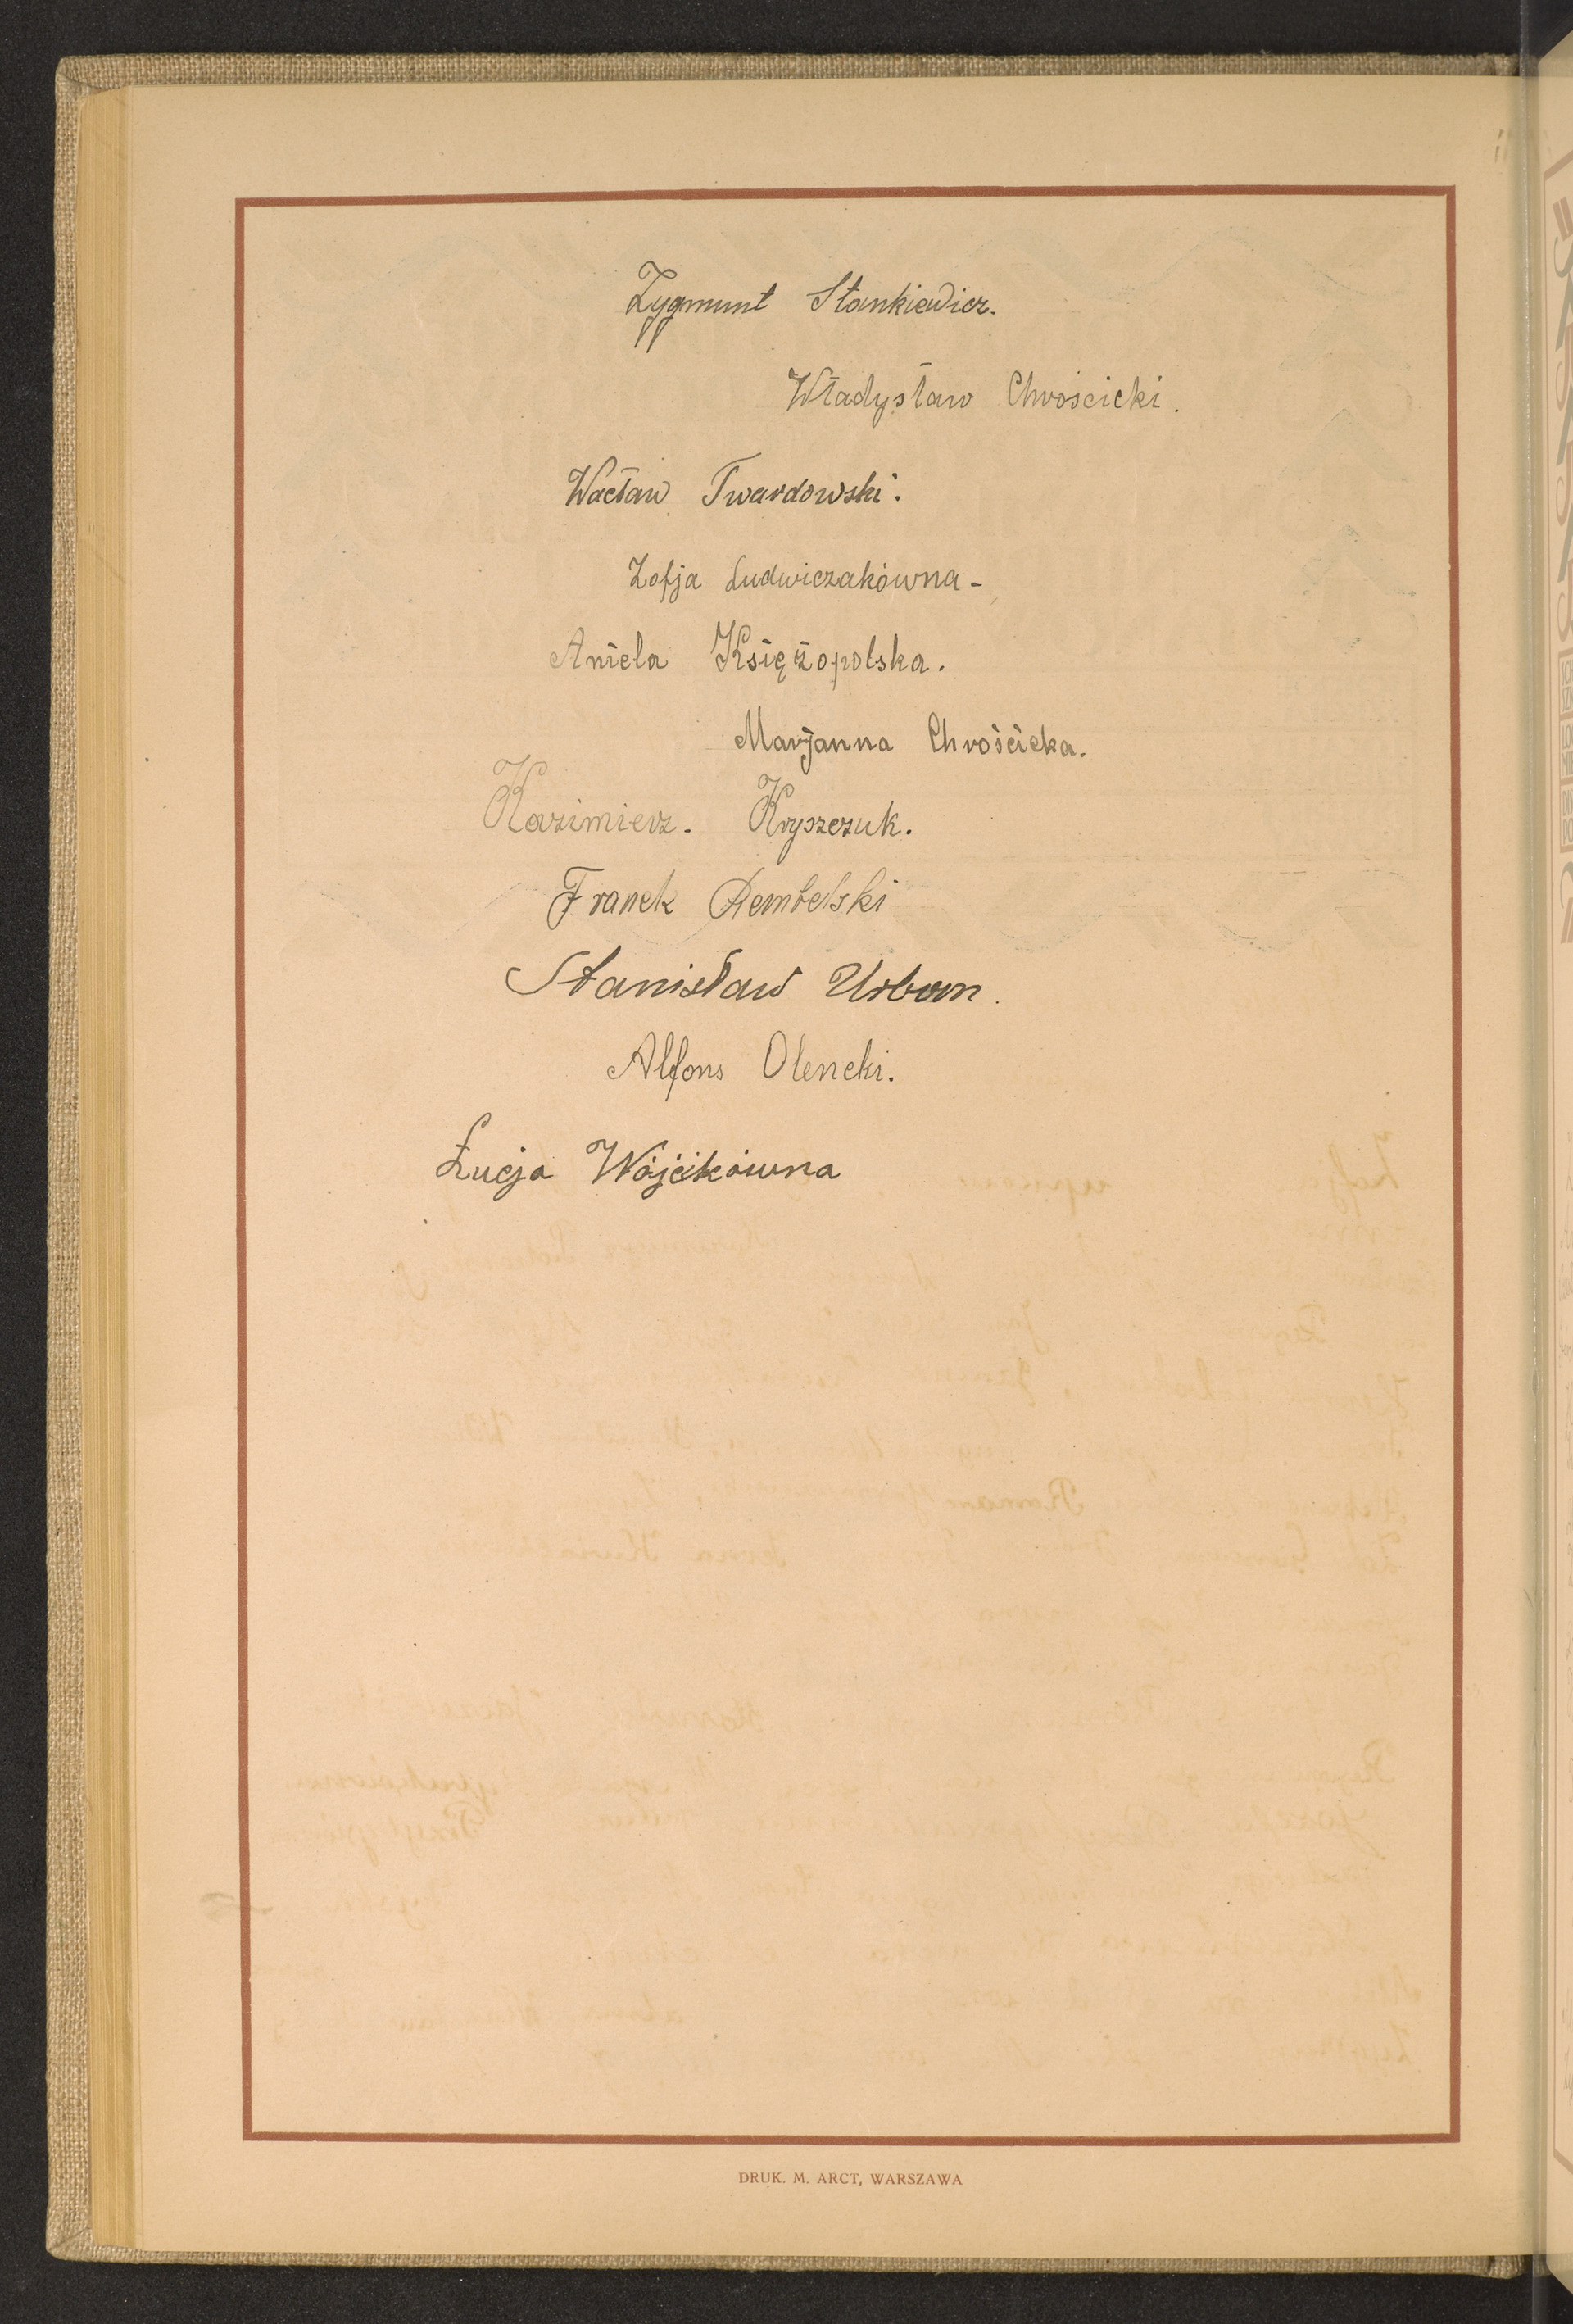 Zygmunt Stankiewicz.
Władysław Chrościcki.
Wacław Twardowski.
Zofja Ludwiczakówna -
Aniela Księżopolska.
Marjanna Chrościcka.
Kazimierz. Kryszczuk.
Franek Rembelski
Stanisław Urban.
Alfons Olencki.
Łucja Wójcikówna
DRUK. M. ARCT, WARSZAWA